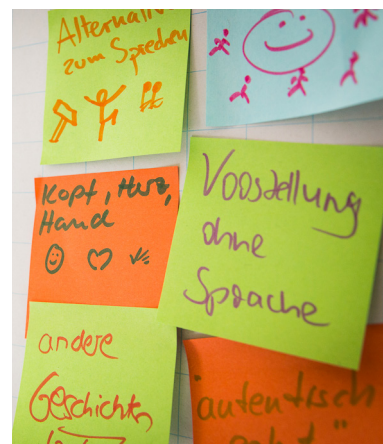 Alternativ
zum Sprechen
Kopf, Herz,
Hand
Vorstellung
ohne
Sprache
andere
Geschichten
"autentisch